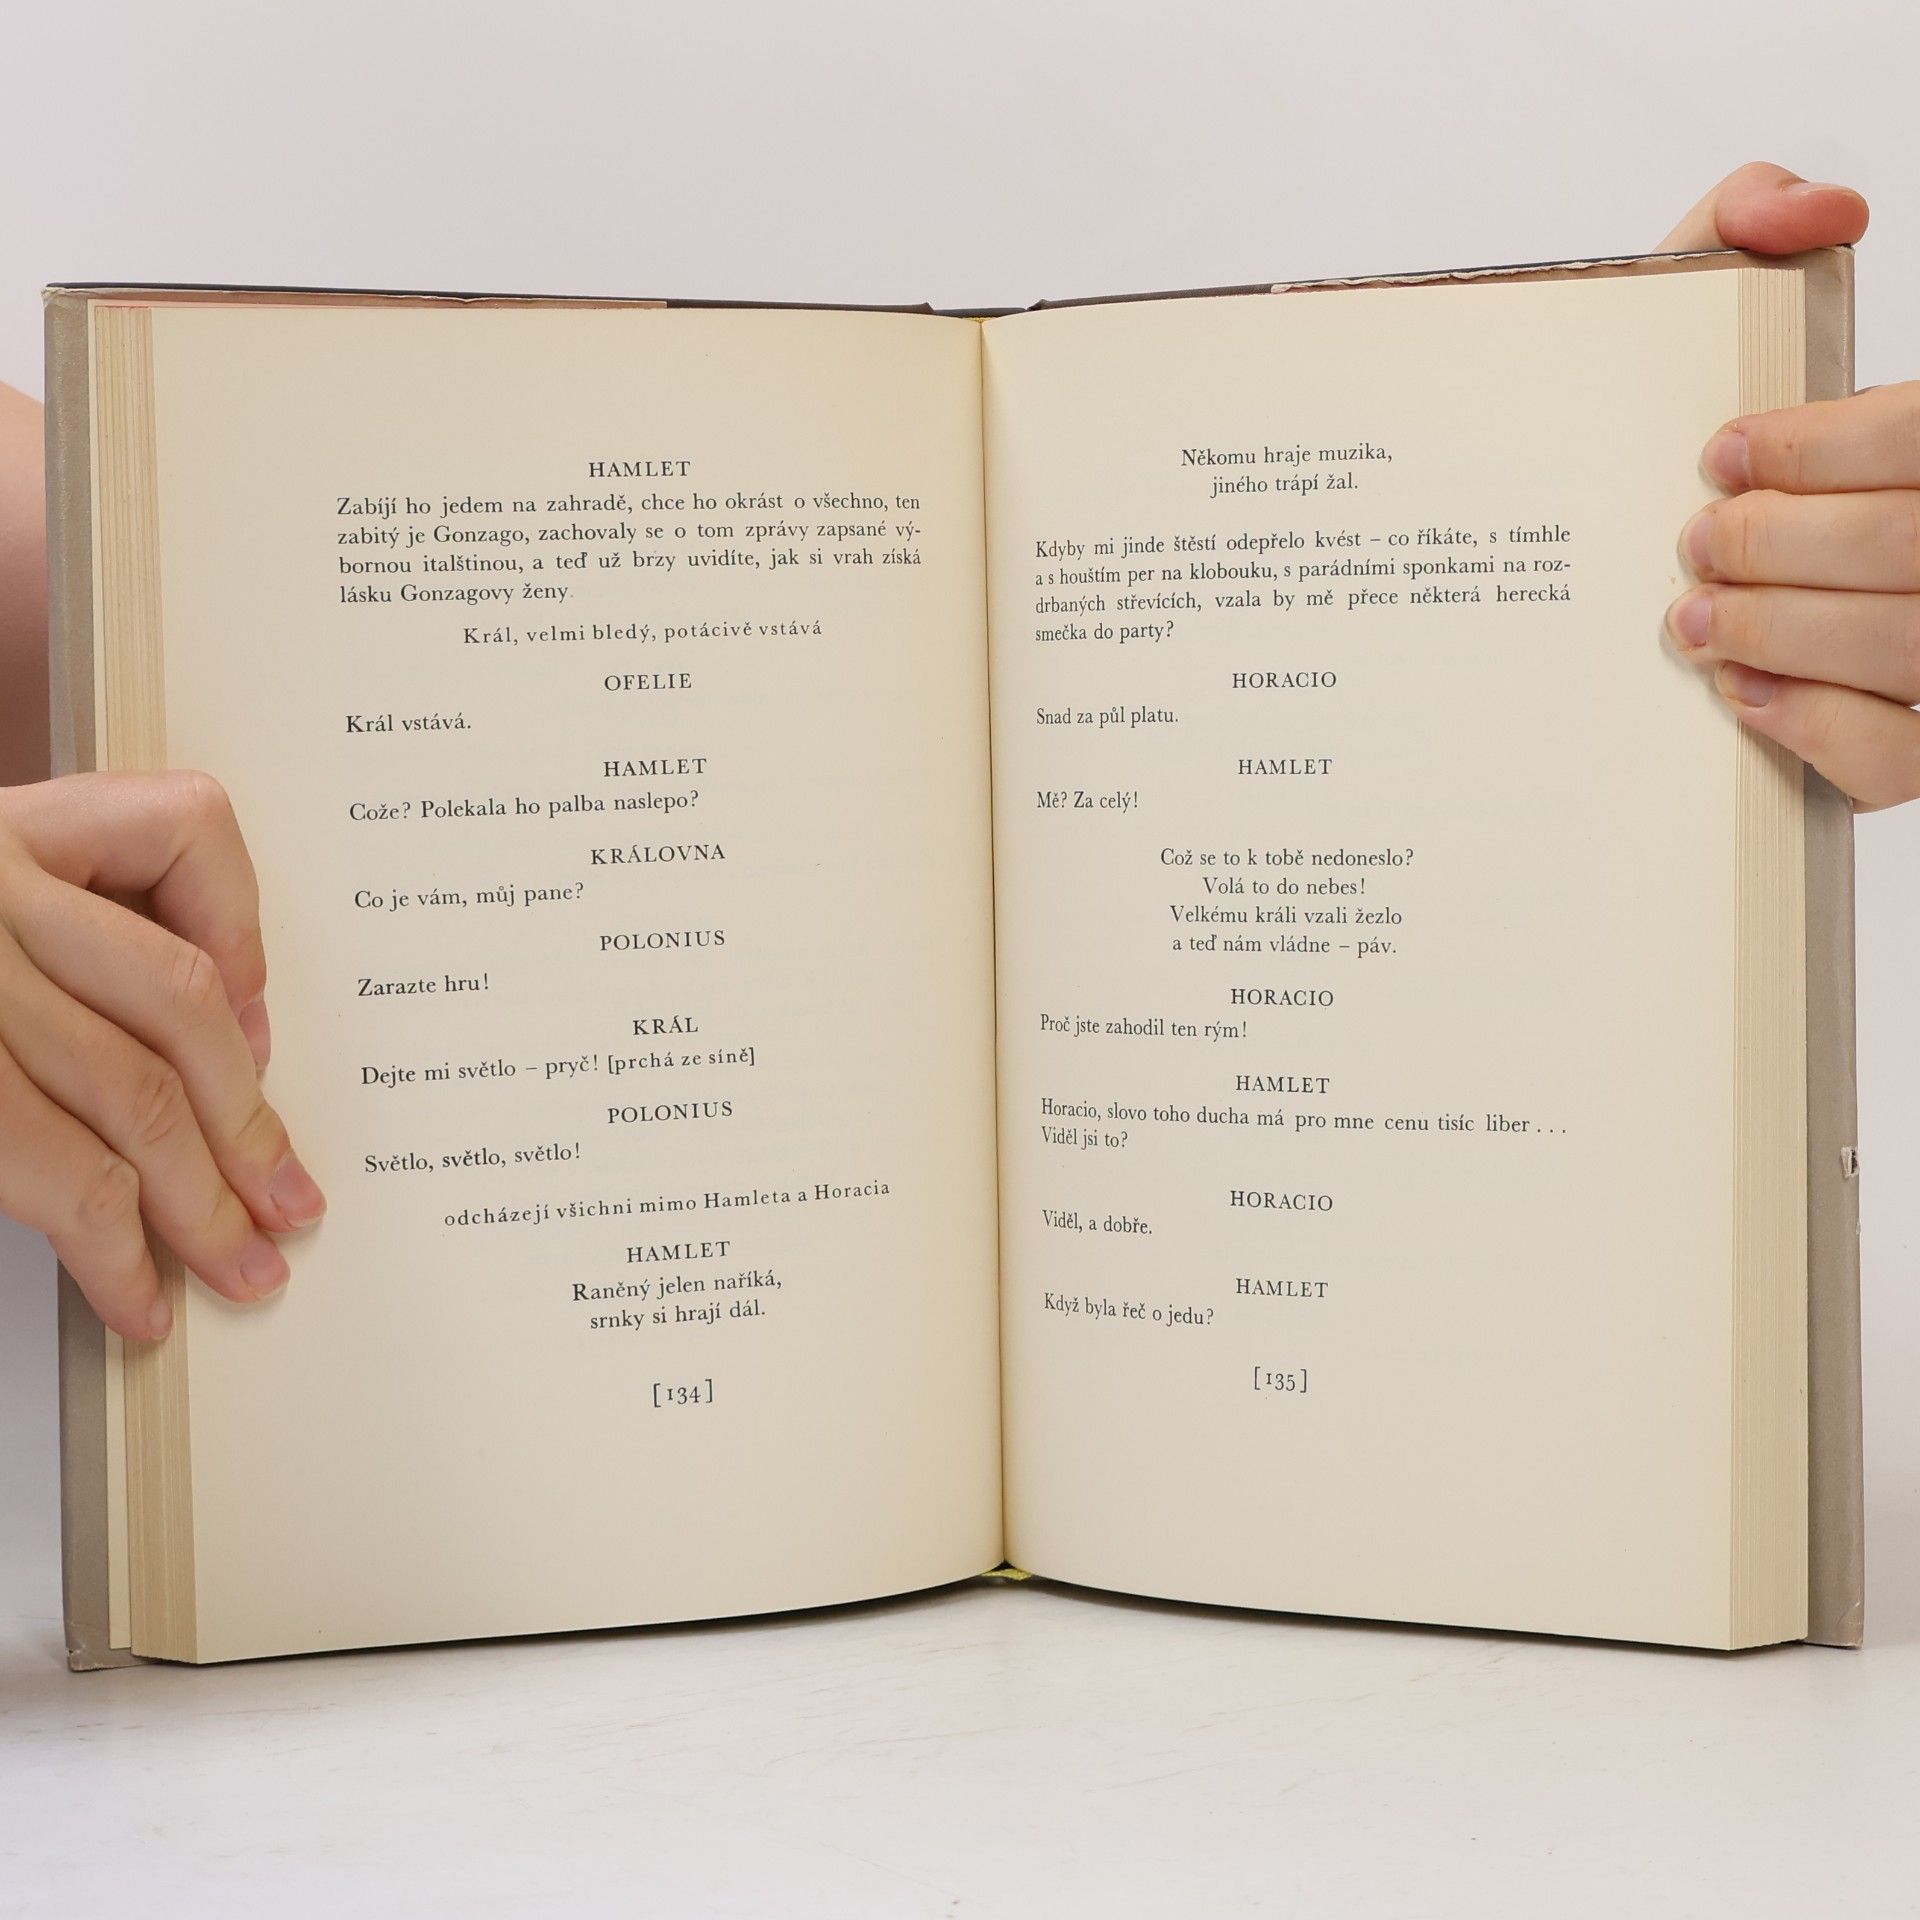 HAMLET
Zabíjí ho jedem na zahradě, chce ho okrást o všechno, ten
zabitý je Gonzago, zachovaly se o tom zprávy zapsané vý-
bornou italštinou, a teď už brzy uvidíte, jak si vrah získá
lásku Gonzagovy ženy.
Král, velmi bledý, potácivě vstává
OFELIE
Král vstává.
HAMLET
Cože? Polekala ho palba naslepo?
KRÁLOVNA
Co je vám, můj pane?
POLONIUS
Zarazte hru!
KRÁL
Dejte mi světlo – pryč! [prchá ze síně]
POLONIUS
Světlo, světlo, světlo!
odcházejí všichni mimo Hamleta a Horacia
HAMLET
Raněný jelen naříká,
srnky si hrají dál.
[134]
Někomu hraje muzika,
jiného trápí žal.
Kdyby mi jinde štěstí odepřelo kvést – co říkáte, s tímhle
a s houštím per na klobouku, s parádními sponkami na roz-
drbaných střevících, vzala by mě přece některá herecká
smečka do party?
HORACIO
Snad za půl platu.
HAMLET
Mě? Za celý!
Což se to k tobě nedoneslo?
Volá to do nebes!
Velkému králi vzali žezlo
a teď nám vládne – páv.
HORACIO
Proč jste zahodil ten rým!
HAMLET
Horacio, slovo toho ducha má pro mne cenu tisíc liber . . .
Viděl jsi to?
HORACIO
Viděl, a dobře.
HAMLET
Když byla řeč o jedu?
[135]